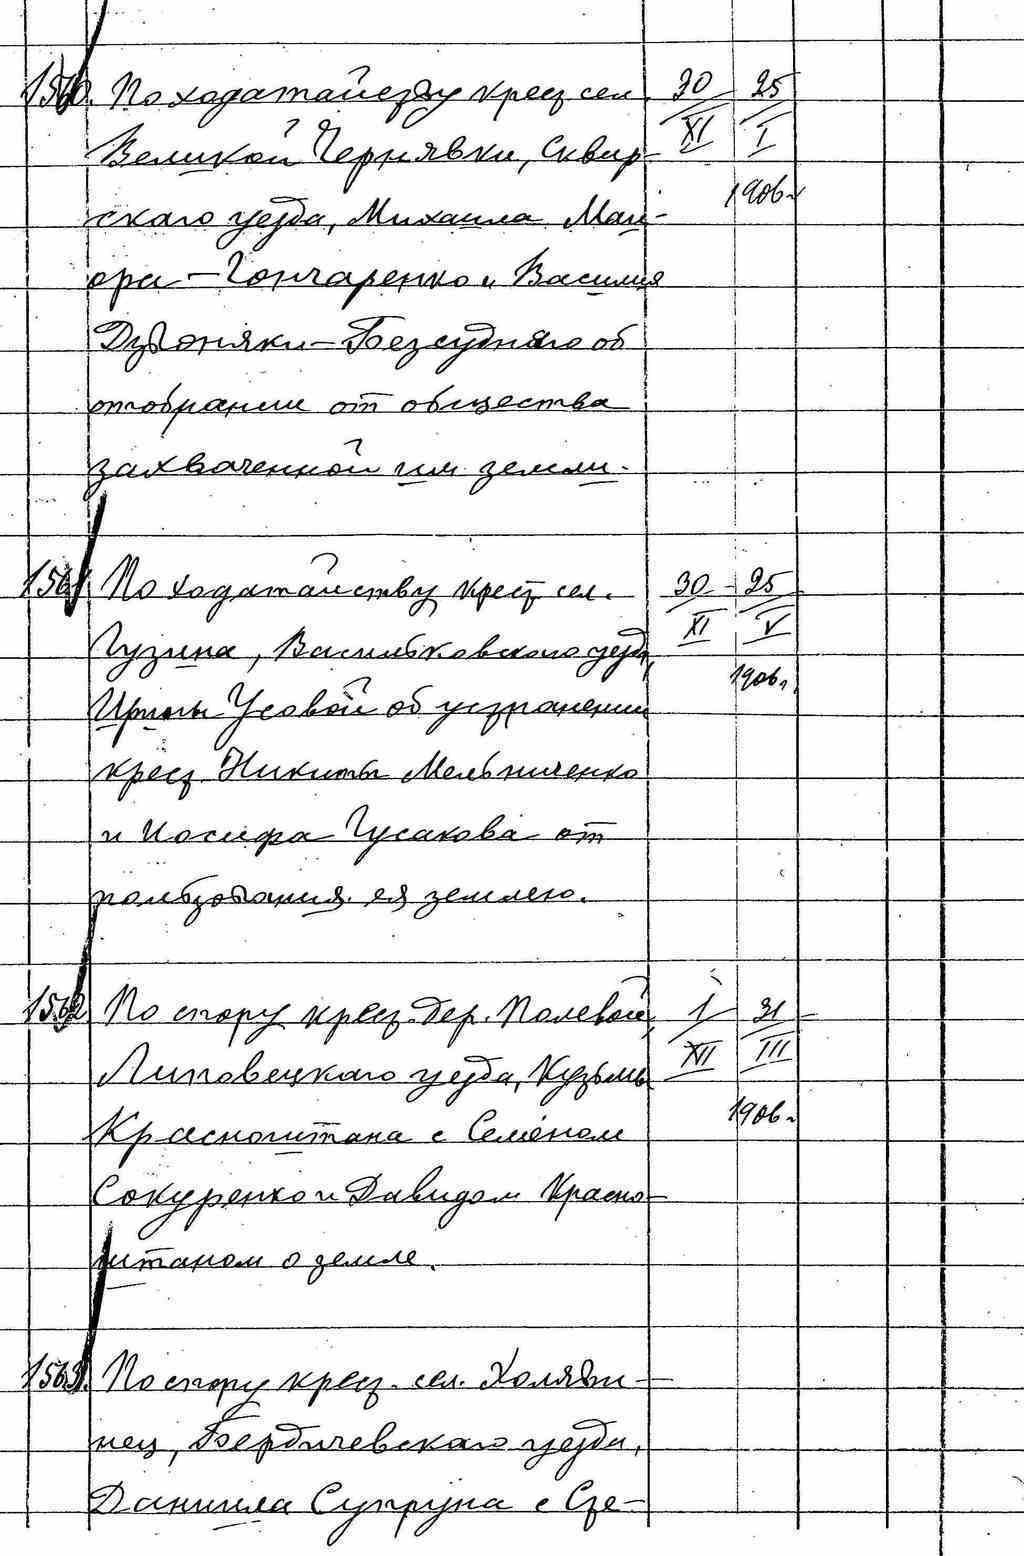 1560. По ходатайству крест. сел. 30 25
Великой Чернявки, Сквир- XI I
скаго уезда, Михаила Май- 1906 г.
ора-Гончаренко и Василия
Дзвоняки-Безсуднаго об
отобрании от общества
захваченной им земли.
1561 По ходатайству крест. сел. 30 25
Гузина, Васильковского уезда, XI V
Ирины Усовой об устранении 1906 г.
крест. Никиты Мельниченко
и Иосифа Гусакова от
пользования ея землею.
1562 По спору крест. дер. Полевой, 1 31
Липовецкаго уезда, Кузьмы XII III
Красноштана с Семеном 1906 г.
Сокуренко и Давидом Красно-
штаном о земле.
1563. По спору крест. сел. Холявин-
нец, Бердичевскаго уезда,
Даниила Супруна с Сте-